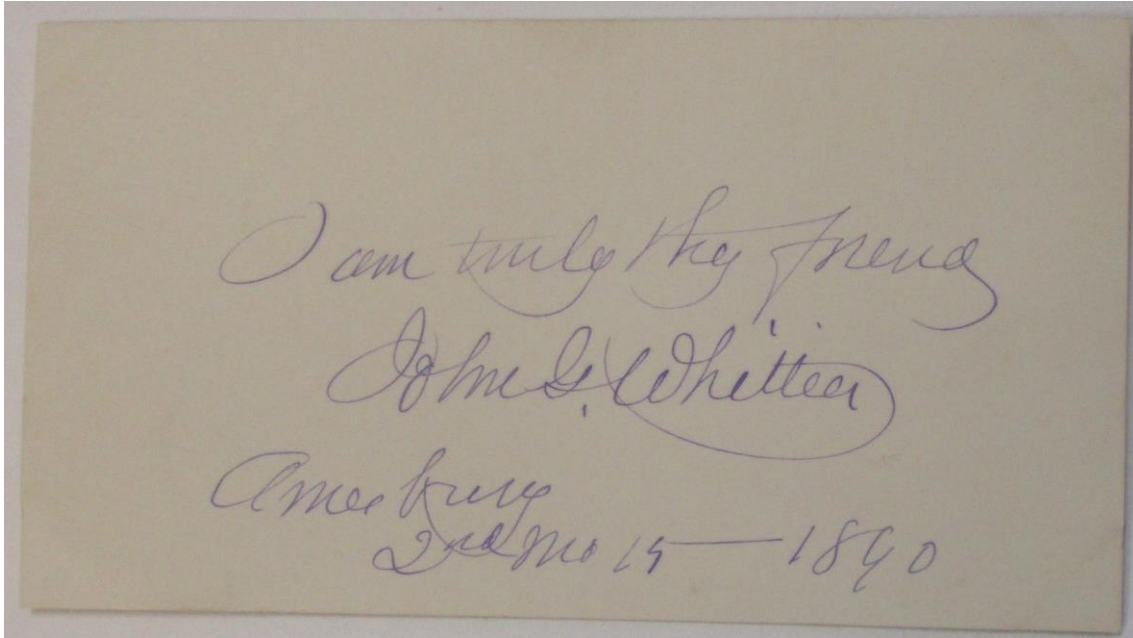 I am truly thy friend
John G. Whittier
Amesbury
2nd Mo 15 — 1890